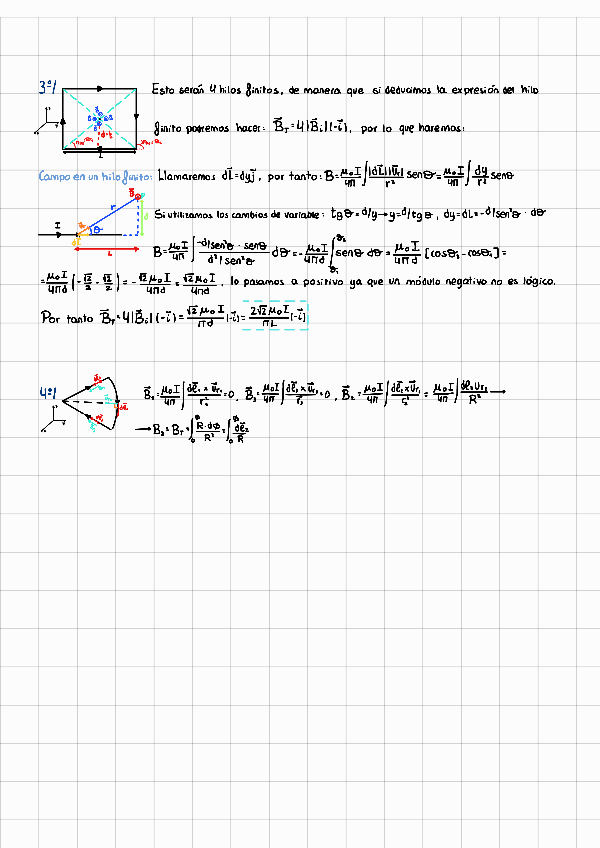 3º/ Esto serán 4 hilos finitos, de manera que si deducimos la expresión del hilo
finito podremos hacer: B⃗_T = 4|B⃗₁|(-i⃗), por lo que haremos:
L
Campo en un hilo finito: Llamaremos dL⃗=dyj⃗, por tanto: B = μ₀I/4π ∫ |dL⃗||u⃗r|/r² senθ = μ₀I/4π ∫ dy/r² senθ
Si utilizamos los cambios de variable: tgθ = d/y → y = d/tgθ, dy = dL = -d/sen²θ · dθ
I r θ d L
B = μ₀I/4π ∫ (-d/sen²θ · senθ)/(d²/sen²θ) dθ = -μ₀I/4πd ∫ senθ dθ = μ₀I/4πd [cosθ₂ - cosθ₁] =
= μ₀I/4πd (-√2/2 - √2/2) = -√2μ₀I/4πd = √2μ₀I/4πd, lo pasamos a positivo ya que un módulo negativo no es lógico.
Por tanto B⃗_T = 4|B⃗₁|(-i⃗) = √2μ₀I/πd (-i⃗) = 2√2μ₀I/πL (-i⃗)
4º/ B⃗₁ = μ₀I/4π ∫ dℓ⃗₁ × u⃗r₁/r₁² = 0, B⃗₃ = μ₀I/4π ∫ dℓ⃗₃ × u⃗r₃/r₃² = 0, B⃗₂ = μ₀I/4π ∫ dℓ⃗₂ × u⃗r₂/r₂² = μ₀I/4π ∫ dℓ⃗₂ u⃗r₂/R² →
→ B₂ = B_T = ∫₀ R·dφ/R² = ∫₀ dℓ⃗₂/R